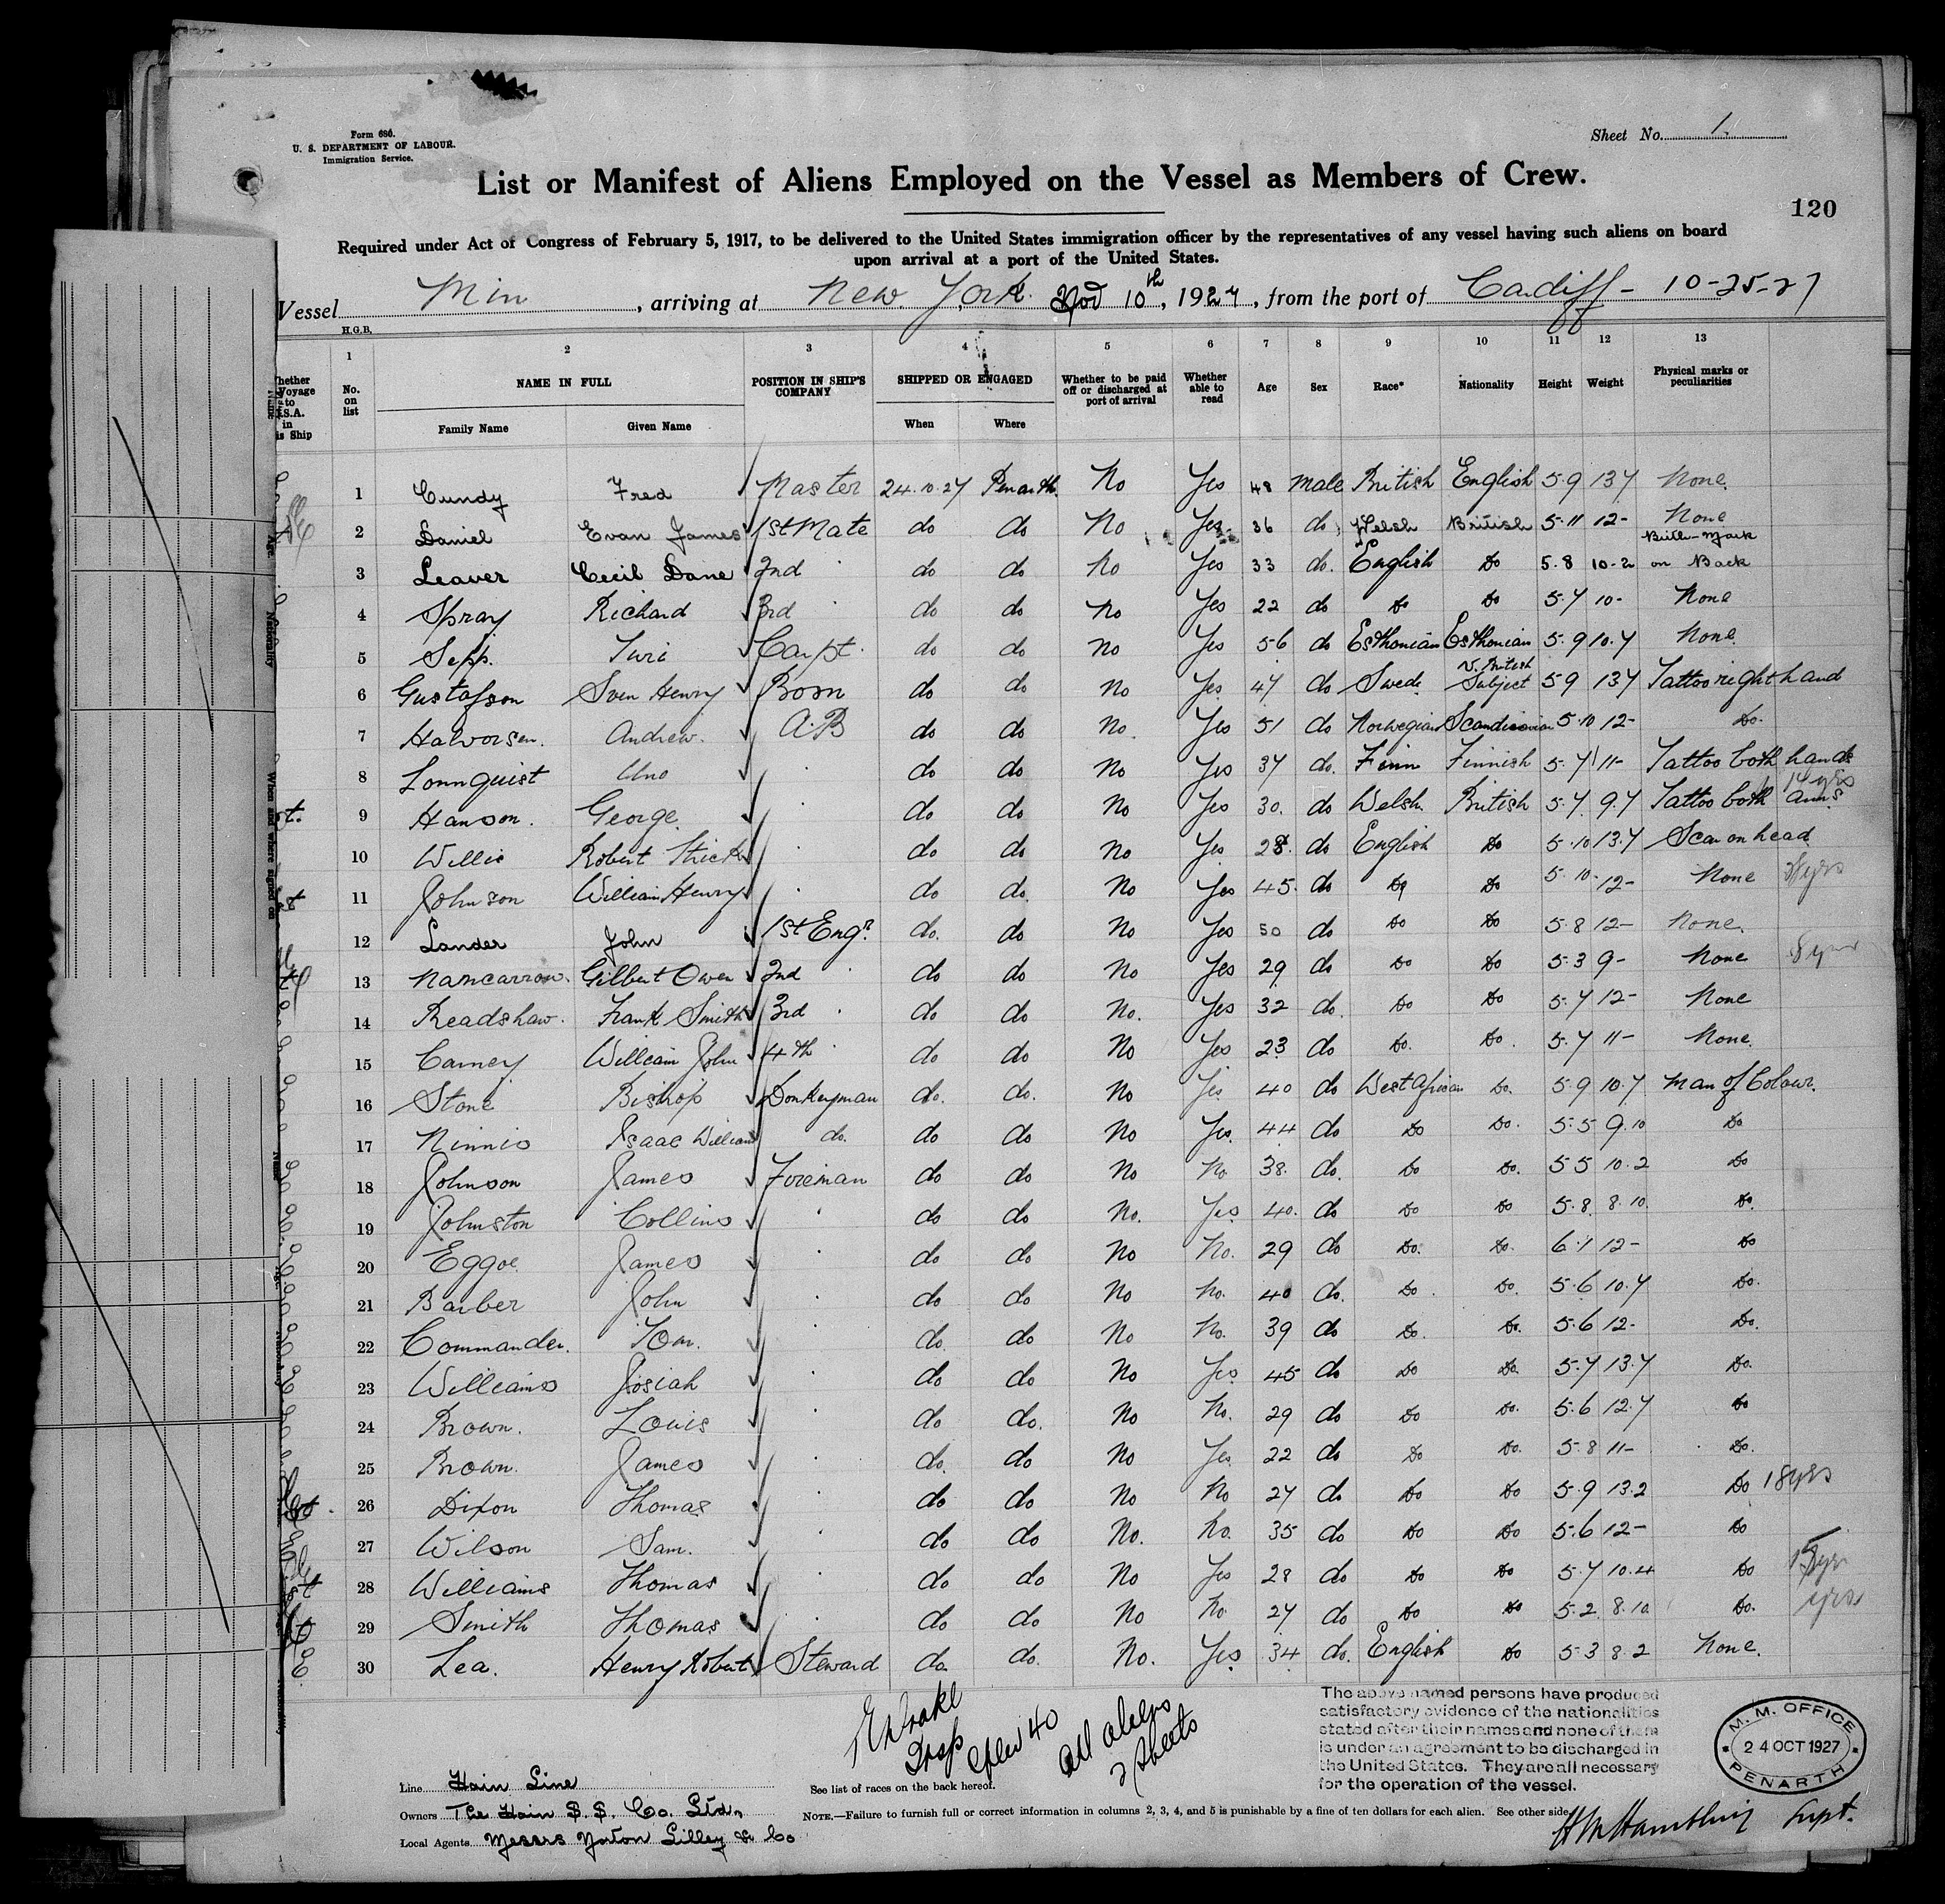 Form 680.
U. S. DEPARTMENT OF LABOUR.
Immigration Service.
Sheet No. 1.
List or Manifest of Aliens Employed on the Vessel as Members of Crew.
120
Required under Act of Congress of February 5, 1917, to be delivered to the United States immigration officer by the representatives of any vessel having such aliens on board
upon arrival at a port of the United States.
Vessel Min, arriving at New York. Nov 10th, 1927, from the port of Cardiff - 10-25-27
H.G.B.
1 2 3 4 5 6 7 8 9 10 11 12 13
No. on list NAME IN FULL POSITION IN SHIP'S COMPANY SHIPPED OR ENGAGED Whether to be paid off or discharged at port of arrival Whether able to read Age Sex Race* Nationality Height Weight Physical marks or peculiarities
Family Name Given Name When Where
1 Cundy Fred Master 24.10.27 Penarth No Yes 48 Male British English 5.9 13.7 None.
2 Daniel Evan James 1st Mate do do No Yes 36 do Welsh British 5.11 12- None
3 Leaver Cecil Dane 2nd " do do No Yes 33 do. English Do 5.8 10-2 Birth-Mark on Back
4 Spray Richard 3rd " do do No Yes 22 do Do Do 5.7 10- None
5 Sepp. Juri Carpt. do do No Yes 56 do Esthonian Esthonian 5.9 10.7 None
6 Gustafson Sven Henry Bosn do do No Yes 47 do Swede Subject 5 9 13.7 Tattoo right hand
7 Halvorsen. Andrew. A.B do do No. Yes 51 do Norwegian Scandinavian 5.10 12- Do.
8 Lonnquist Uno " do do No Yes 37 do. Finn Finnish 5.7 11- Tattoo both hands
9 Hanson. George. " do do No Yes 30. do Welsh. British 5.7 9.7 Tattoo both arms 14 yrs
10 Willis Robert " do do No Yes 28. do English Do 5.10 13.7 Scar on head
11 Johnson William Henry " do do. No Yes 45. do Do Do 5.10- 12- None
12 Lander John 1st Engr. do. do No Yes 50 do Do Do 5.8 12- None.
13 Nancarrow. Gilbert Owen 2nd " do do No Yes 29 do Do Do 5.3 9- None
14 Readshaw. Frank Smith 3rd " do do No. Yes 32 do. Do Do 5.7 12- None
15 Carney William John 4th " do do No Yes 23 do Do. Do. 5.7 11- None.
16 Stone Bishop Donkeyman do. do. No Yes 40 do West African Do. 5.9 10.7 Man of Colour.
17 Ninnis Isaac William do. do do No Yes. 44 do Do Do. 5.5 9.10 Do
18 Johnson James Fireman do do No No. 38. do. Do Do. 5 5 10.2 Do
19 Johnston Collins " do do No. Yes 40. do Do Do 5.8. 8.10. Do.
20 Eggoe James " do do No No. 29 do Do. Do. 6.1 12- Do
21 Barber John " do do No No. 40 do. Do. Do. 5.6 10.7 Do.
22 Commander. Tom. " do. do No No. 39 do Do. Do. 5.6 12- Do.
23 Williams Josiah " do do No Yes 45 do Do Do. 5.7 13.7 Do.
24 Brown. Louis " do do. No No. 29 do Do Do. 5.6 12.7 Do
25 Brown. James " do. do No Yes. 22 do Do Do. 5.8 11- Do.
26 Dixon Thomas " do do No No 27 do Do Do 5.9 13.2 Do 18yrs
27 Wilson Sam. " do do No. No. 35 do Do Do 5.6 12- Do
28 Williams Thomas " do do No Yes 28 do Do Do 5.7 10.4 Do
29 Smith Thomas " do do No No. 27 do Do Do 5.2. 8.10. Do. yrs
30 Lea. Henry Robert Steward do. do. No. Yes 34 do. English Do 5.3 8.2 None.
Crew 40
All aliens
2 sheets
The above named persons have produced
satisfactory evidence of the nationalities
stated after their names and none of them
is under an agreement to be discharged in
the United States. They are all necessary
for the operation of the vessel.
M. M. OFFICE
24 OCT 1927
PENARTH
Line Hain Line
See list of races on the back hereof.
Owners The Hain S.S. Co. Ltd.,
NOTE.—Failure to furnish full or correct information in columns 2, 3, 4, and 5 is punishable by a fine of ten dollars for each alien. See other side.
Local Agents Messrs Norton Lilley & Co
Supt.